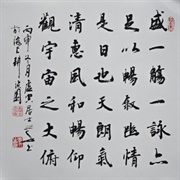 盛一觴一詠亦
足以暢敘幽情
是日也天朗氣
清惠風和暢仰
觀宇宙之大俯
丙申 月 居士
於海上